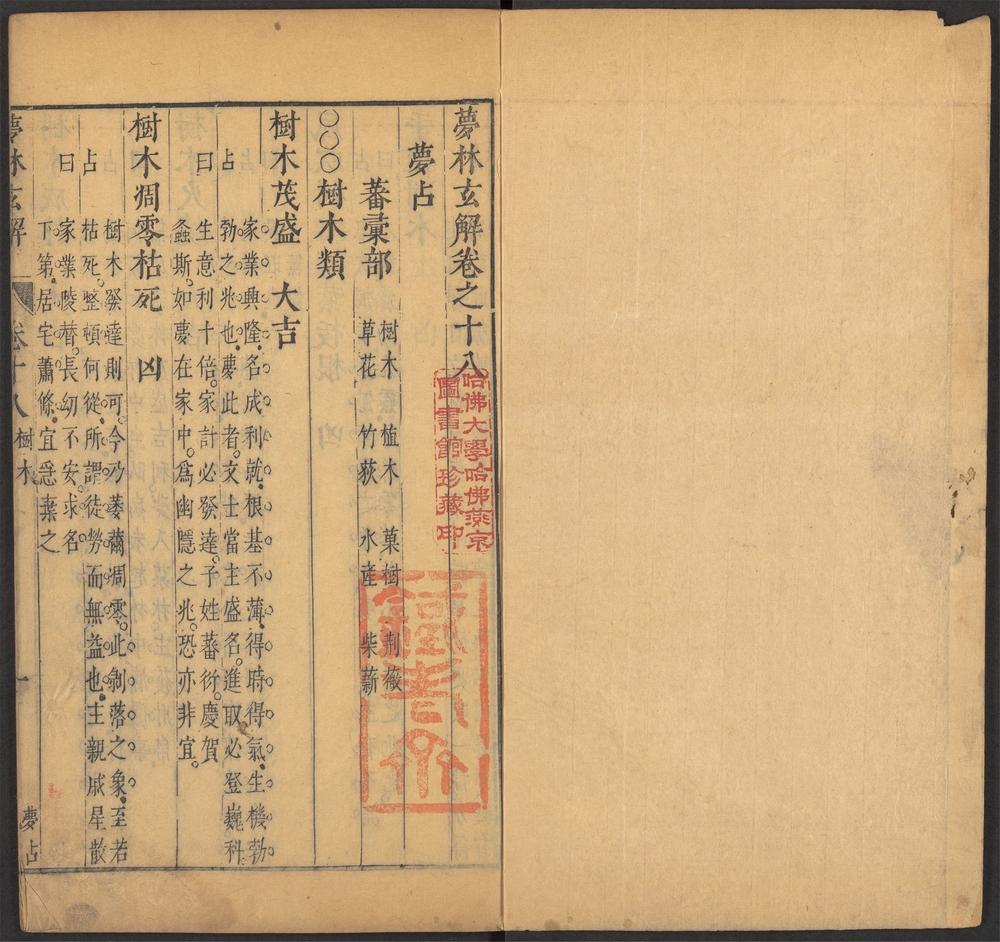 夢林玄解卷之十八
哈佛大學哈佛燕京
圖書館珍藏印
夢占
蕃彙部
樹木 植木 菓樹 荆薇
草花 竹荻 水産 柴薪
○○○樹木類
樹木茂盛 大吉
占曰
家業興隆。名成利就。根基不薄。得時得氣。生機勃
勃之兆也。夢此者。文士當主盛名。進取必登巍科。
生意利十倍。家計必發達。子姓蕃衍。慶賀
螽斯。如夢在家中。爲幽隱之兆。恐亦非宜。
樹木凋零枯死 凶
占曰
樹木發達則可。今乃萎薾凋零。此剝落之象。至若
枯死。整頓何從。所謂徒勞而無益也。主親戚星散
家業陵替。長幼不安。求名
下第。居宅蕭條。宜急棄之
夢林玄解 卷十八 樹木 一 夢占